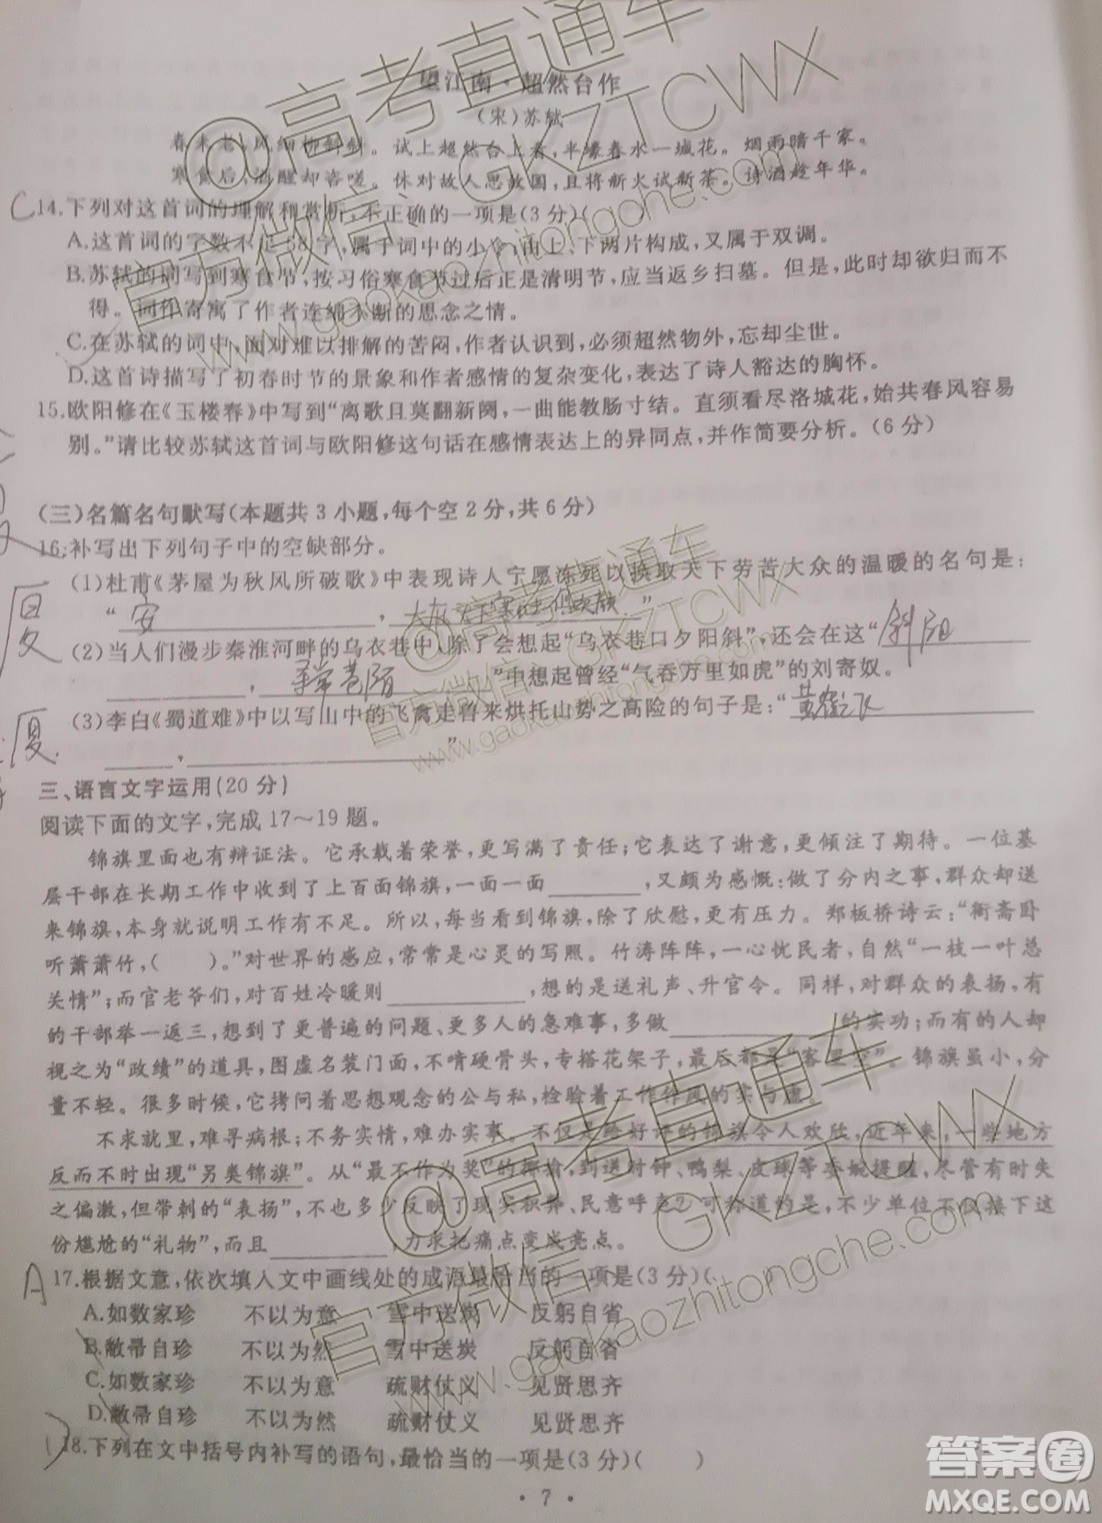 望江南·超然台作
（宋）苏轼
春未老，风细柳斜斜。试上超然台上看，半壕春水一城花。烟雨暗千家。
寒食后，酒醒却咨嗟。休对故人思故国，且将新火试新茶。诗酒趁年华。
C 14.下列对这首词的理解和赏析，不正确的一项是(3分)(
A.这首词的字数不足58字，属于词中的小令；由上、下两片构成，又属于双调。
B.苏轼的词写到寒食节，按习俗寒食节过后正是清明节，应当返乡扫墓。但是，此时却欲归而不
得。词作寄寓了作者连绵不断的思念之情。
C.在苏轼的词中，面对难以排解的苦闷，作者认识到，必须超然物外，忘却尘世。
D.这首诗描写了初春时节的景象和作者感情的复杂变化，表达了诗人豁达的胸怀。
15.欧阳修在《玉楼春》中写到“离歌且莫翻新阕，一曲能教肠寸结。直须看尽洛城花，始共春风容易
别。”请比较苏轼这首词与欧阳修这句话在感情表达上的异同点，并作简要分析。(6分)
(三)名篇名句默写(本题共3小题，每个空2分，共6分)
16.补写出下列句子中的空缺部分。
(1)杜甫《茅屋为秋风所破歌》中表现诗人宁愿冻死以换取天下劳苦大众的温暖的名句是：
“安，”
(2)当人们漫步秦淮河畔的乌衣巷中，除了会想起“乌衣巷口夕阳斜”，还会在这“斜阳
，寻常巷陌”中想起曾经“气吞万里如虎”的刘寄奴。
(3)李白《蜀道难》中以写山中的飞禽走兽来烘托山势之高险的句子是：“黄鹤之飞
，”
厦
厦
三、语言文字运用(20分)
阅读下面的文字，完成17～19题。
锦旗里面也有辩证法。它承载着荣誉，更写满了责任；它表达了谢意，更倾注了期待。一位基
层干部在长期工作中收到了上百面锦旗，一面一面________，又颇为感慨：做了分内之事，群众却送
来锦旗，本身就说明工作有不足。所以，每当看到锦旗，除了欣慰，更有压力。郑板桥诗云：“衙斋卧
听萧萧竹，(　　)。”对世界的感应，常常是心灵的写照。竹涛阵阵，一心忧民者，自然“一枝一叶总
关情”；而官老爷们，对百姓冷暖则________，想的是送礼声、升官令。同样，对群众的表扬，有
的干部举一返三，想到了更普遍的问题、更多人的急难事，多做________的实功；而有的人却
视之为“政绩”的道具，图虚名装门面，不啃硬骨头，专搭花架子，最后都是“客里空”。锦旗虽小，分
量不轻。很多时候，它拷问着思想观念的公与私，检验着工作作风的实与虚。
不求就里，难寻病根；不务实情，难办实事。不仅是给好评的锦旗令人欢欣，近年来，一些地方
反而不时出现“另类锦旗”。从“最不作为奖”的揶揄，到送时钟、鸭梨、皮球等委婉提醒，尽管有时失
之偏激，但带刺的“表扬”，不少反映了现实积弊、民意呼声。可称道的是，不少单位不仅接下这
份尴尬的“礼物”，而且________，力求把痛点变成亮点。
A 17.根据文意，依次填入文中画线处的成语最恰当的一项是(3分)(
A.如数家珍　不以为意　雪中送炭　反躬自省
B.敝帚自珍　不以为然　雪中送炭　反躬自省
C.如数家珍　不以为意　疏财仗义　见贤思齐
D.敝帚自珍　不以为然　疏财仗义　见贤思齐
18.下列在文中括号内补写的语句，最恰当的一项是(3分)(　　)
·7·
@高考直通车
官方微信：GKZTCWX
www.gaokaozhitongche.com
@高考直通车
官方微信：GKZTCWX
www.gaokaozhitongche.com
@高考直通车
官方微信：GKZTCWX
www.gaokaozhitongche.com
答案圈
MXQE.COM